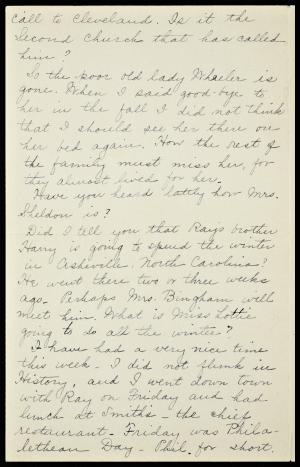 call to Cleveland. Is it the
Second Church that has called
him?
So the poor old lady Wheeler is
gone. When I said good-bye to
her in the fall I did not think
that I should see her there on
her bed again. How the rest of
the family must miss her, for
they almost lived for her.
Have you heard lately how Mrs.
Sheldon is?
Did I tell you that Ray's brother
Harry is going to spend the winter
in Asheville, North Carolina?
He went there two or three weeks
ago. Perhaps Mrs. Bingham will
meet him. What is Miss Lottie
going to do all the winter?
I have had a very nice time
this week. I did not flunk in
History, and I went down town
with Ray on Friday and had
lunch at Smith's - the chief
restaurant - Friday was Phila-
lethean Day - Phil. for short.